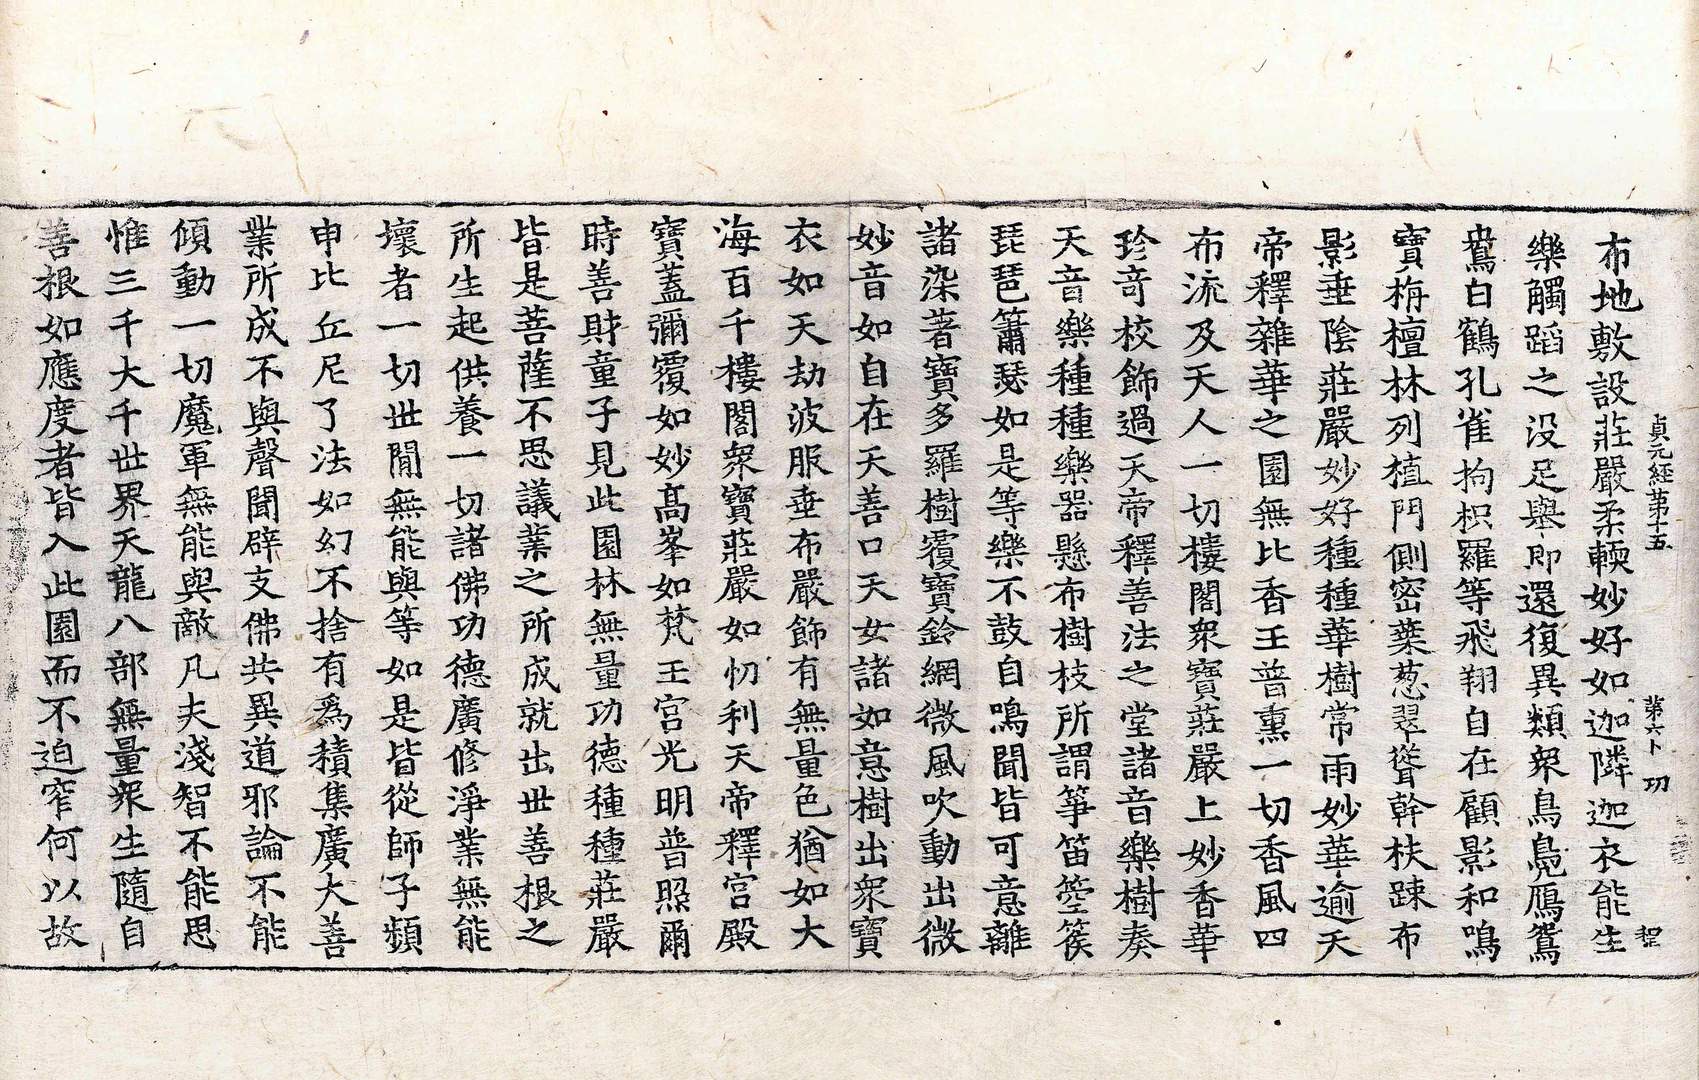 貞元經第十五 第六卜 功 程
布地敷設莊嚴柔輭妙好如迦隣迦衣能生
樂觸蹈之没足舉即還復異類衆鳥鳧鴈鴛
鴦白鶴孔雀拘枳羅等飛翔自在顧影和鳴
寶栴檀林列植門側密葉葱翠聳幹扶踈布
影垂陰莊嚴妙好種種華樹常雨妙華逾天
帝釋雜華之園無比香王普熏一切香風四
布流及天人一切樓閣衆寶莊嚴上妙香華
珍奇校飾過天帝釋善法之堂諸音樂樹奏
天音樂種種樂器懸布樹枝所謂箏笛箜篌
琵琶簫瑟如是等樂不鼓自鳴聞皆可意離
諸染著寶多羅樹覆寶鈴網微風吹動出微
妙音如自在天善口天女諸如意樹出衆寶
衣如天劫波服垂布嚴飾有無量色猶如大
海百千樓閣衆寶莊嚴如忉利天帝釋宮殿
寶蓋彌覆如妙髙峯如梵王宮光明普照爾
時善財童子見此園林無量功德種種莊嚴
皆是菩薩不思議業之所成就出世善根之
所生起供養一切諸佛功德廣修淨業無能
壞者一切世閒無能與等如是皆從師子頻
申比丘尼了法如幻不捨有爲積集廣大善
業所成不與聲聞辟支佛共異道邪論不能
傾動一切魔軍無能與敵凡夫淺智不能思
惟三千大千世界天龍八部無量衆生隨自
善根如應度者皆入此園而不迫窄何以故